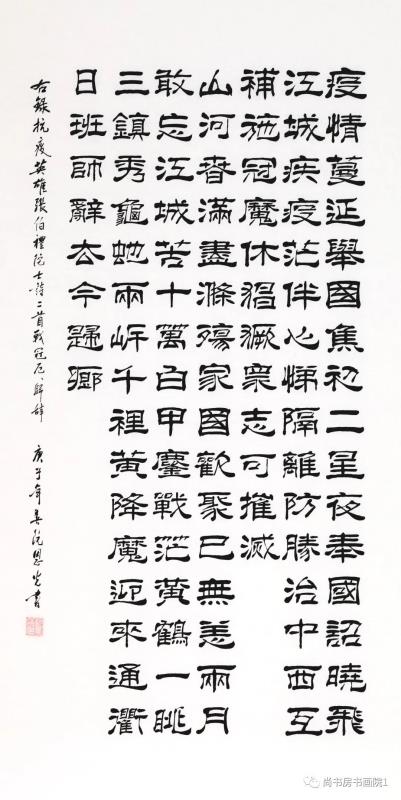 疫情蔓延舉國焦初二星夜奉國詔曉飛
江城疾疫茫伴心悌隔離防勝治中西互
補施冠魔休猖獗衆志可摧滅
山河春滿盡滌殤家國歡聚已無恙兩月
敢忘江城苦十萬白甲鏖戰茫黄鶴一眺
三鎮秀龜虵兩岸千裡黄降魔迎來通衢
日班師辭去今歸鄉
右録抗疫英雄張伯禮院士詩二首戰冠厄、歸辞 庚子年春阮恩光書
尚书房书画院1